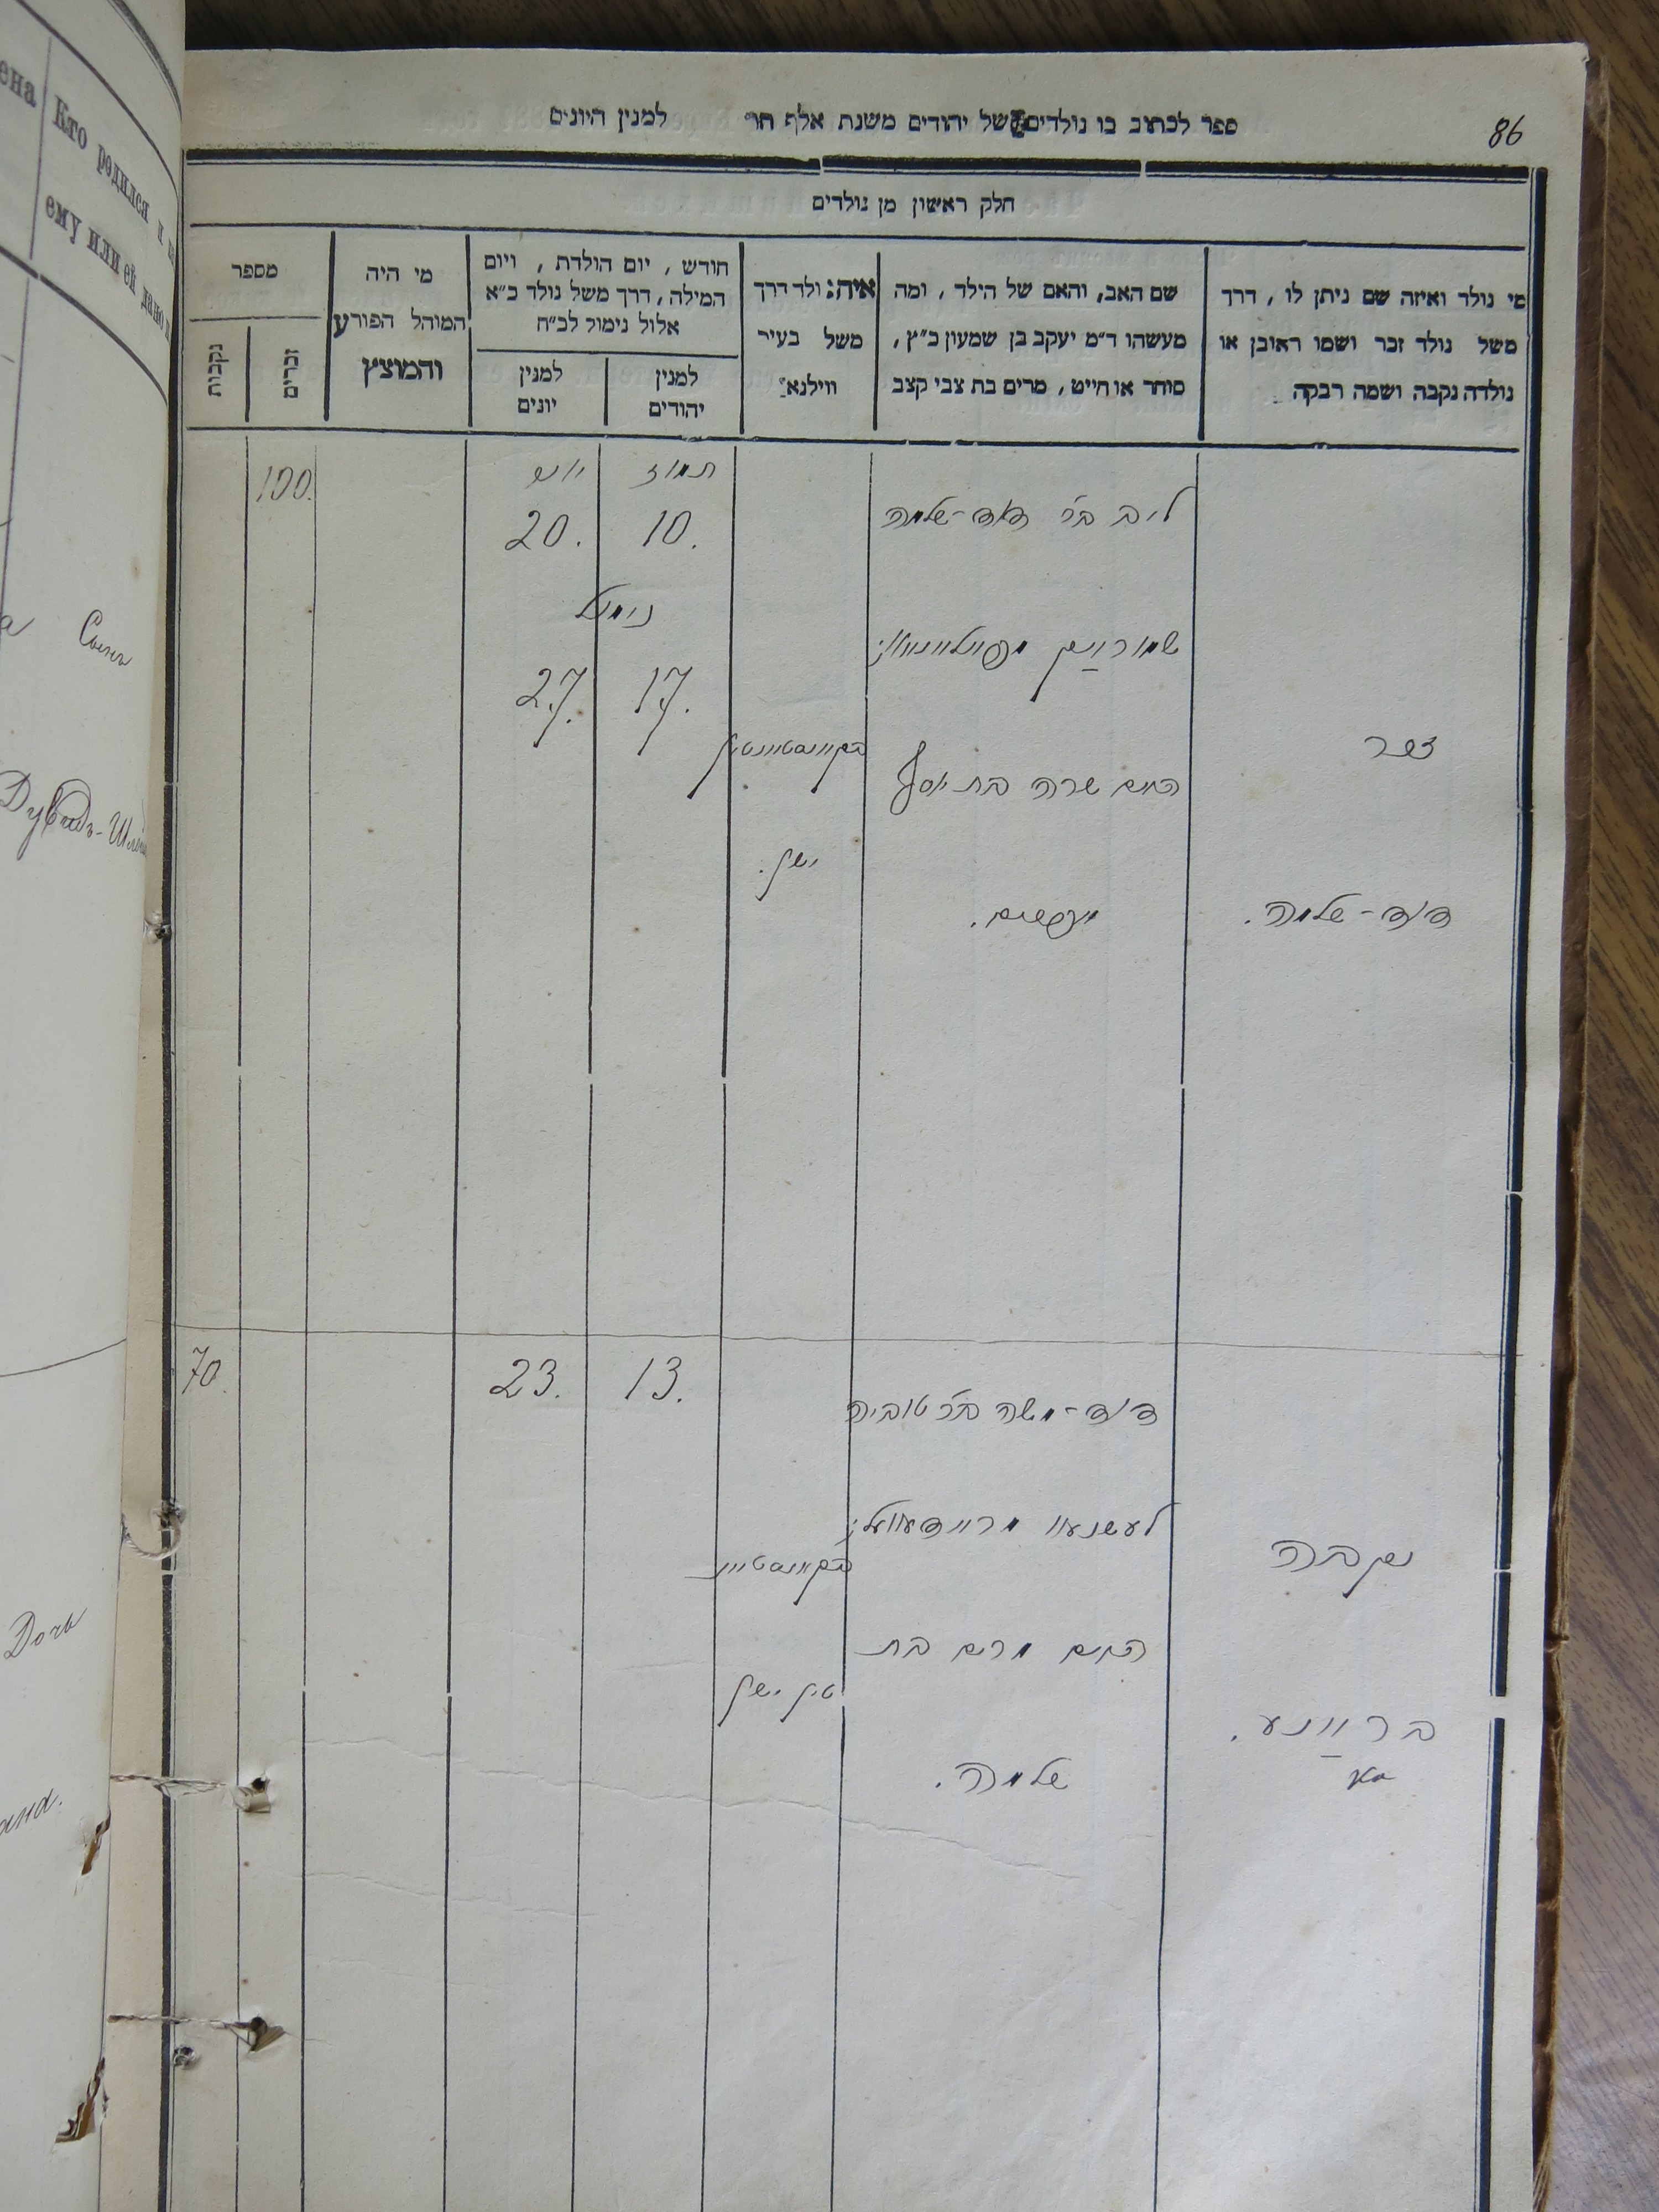 86
ספר לכתוב בו נולדים של יהודים משנת אלף תר למנין היונים
חלק ראשון מן נולדים
מי נולד ואיזה שם ניתן לו, דרך
משל נולד זכר ושמו ראובן או
נולדה נקבה ושמה רבקה
שם האב, והאם של הילד, ומה
מעשהו ד״מ יעקב בן שמעון כ״ץ,
סוחר או חייט, מרים בת צבי קצב
איה: ולד דרך
משל בעיר
ווילנא:
חודש, יום הולדת, ויום
המילה, דרך משל נולד כ״א
אלול נימול לכ״ח
למנין
יהודים
למנין
יונים
מי היה
המוהל הפורע
והמוצץ
מספר
זכרים
נקבות
זכר
דוד-שלמה.
ליב ב״ר דוד-שלמה
האם שרה בת יוסף
תמוז
10.
יוני
20.
נימול
17.
27.
ישן.
100.
נקבה
דוד-משה ב״ר טוביה
האם מרים בת
שלמה.
טין ישן
13.
23.
70.
ена
Кто родился и
ему или ей дано
Сынъ
Дувидъ-Шлёма
Дочь